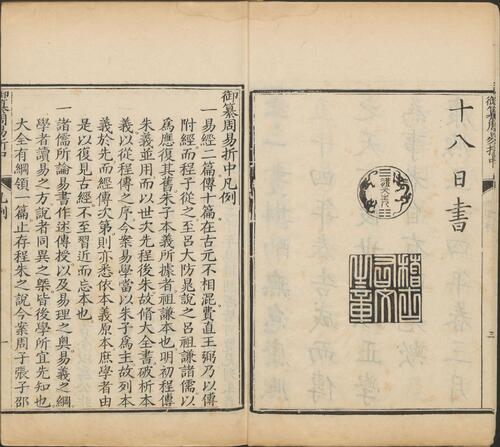 御纂周易折中
十八日書
體元主人
稽古右文之章
御纂周易折中凡例
一易經二篇傳十篇在古元不相混費直王弼乃以傳
附經而程子從之至呂大防晁說之呂祖謙諸儒以
為應復其舊朱子本義所據者祖謙本也明初程傳
朱義並用而以世次先程後朱故脩大全書破析本
義以從程傳之序今案易學當以朱子為主故列本
義於先而經傳次第則亦悉依本義原本庶學者由
是以復見古經不至習近而忘本也
一諸儒所論易書作述傳授以及易理之奧易義之綱
學者讀易之方說者同異之槩皆後學所宜先知也
大全有綱領一篇止存程朱之說今案周子張子邵
御纂周易折中 凡例 一